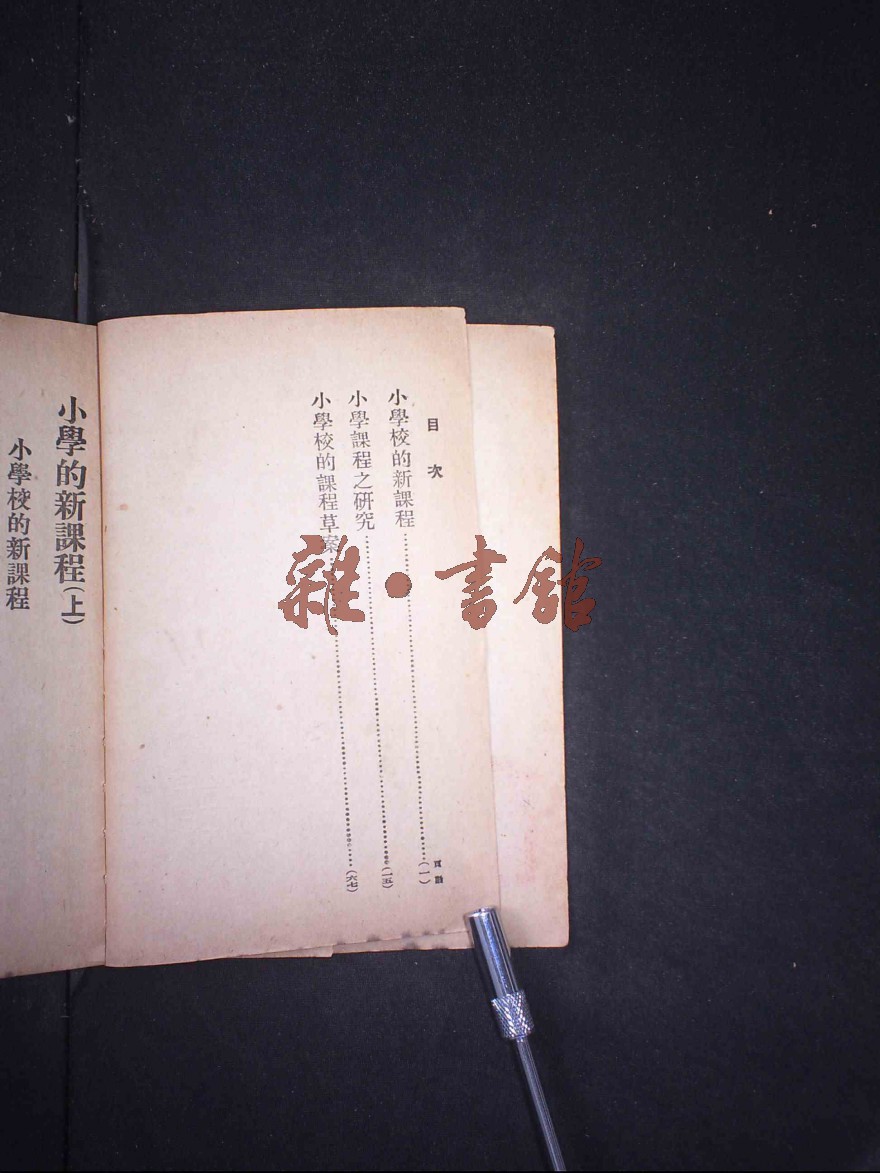 目次
頁數
小學校的新課程……(一)
小學課程之研究……(一五)
小學校的課程草案……(六七)
小學的新課程(上)
小學校的新課程
雜•書館